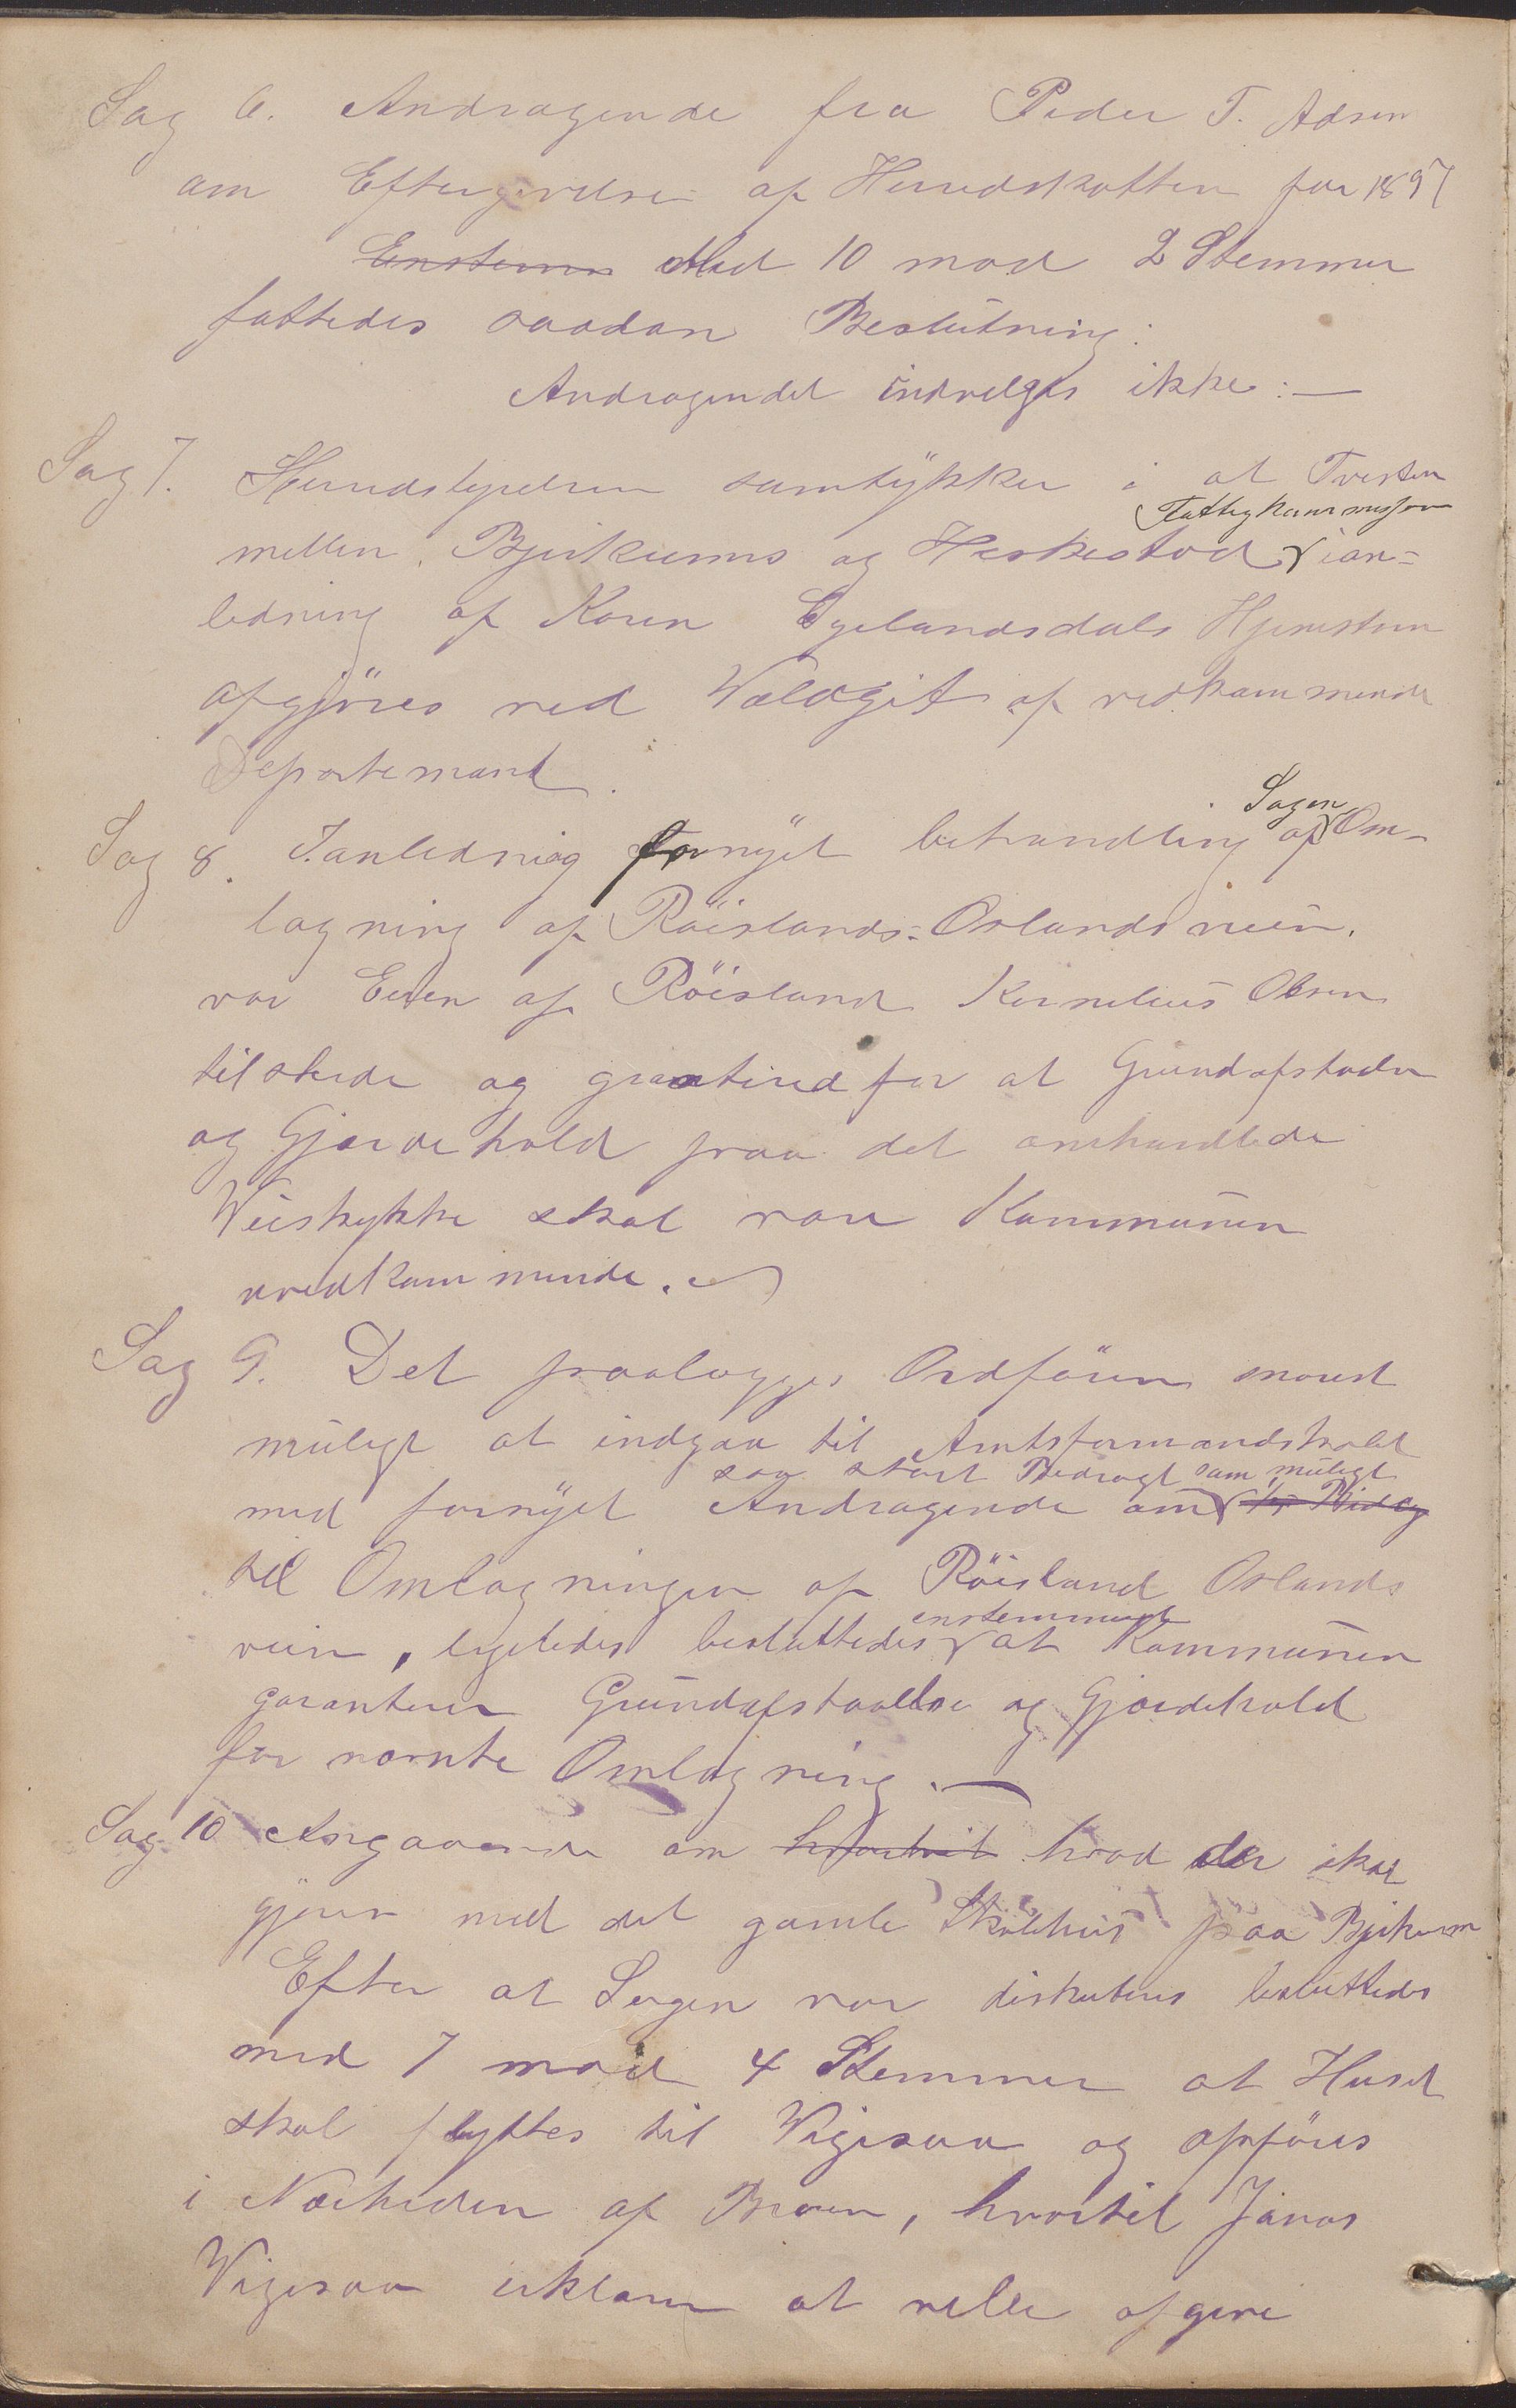 Sag 6. Andragende fra Peder T. Adsen
om Eftergivelse af Herredskatten for 1897
Enstemm Med 10 mod 2 Stemmer
fattedes saadan Beslutning:
Andragendet indvelges ikke: —
Sag 7. Herredstyrelsen samtykker i at Tvisten
Fattigkommission
mellem Bjerkreims og Heskestad ian=
ledning af Karen Eyelandsdals Hjemstavn
afgjöres ved Voldgift af vedkommende
Departemant.
Sagen
Sag 8. I anledning fornyet behandling af Om-
lægning af Röislands-Orlandsveien.
var Eieren af Röisland Kornelius Olsen
tilstede og garantired for at Grundafstaaelse
og Gjærdehold paa det omhandlede
Veistykke skal være Kommunen
uvedkommende.
Sag 9. Det paalægges Ordfören snarest
muligt at indgaa til Amtsformandskabet
saa stort Bedragt som muligt
med fornyet Andragende om Bidrag
til Omlægningen af Röisland Orlands
enstemmigt
veien, ligeledes besluttedes at Kommunen
garanterer Grundafstaaelse og Gjærdehold
for nævnte Omlægning. —
Sag 10 Angaaende om hvorvidt hvad der skal
gjøres med det gamle Skolehus paa Bjerkreim
Efter at Sagen var diskuteres besluttedes
med 7 mod 4 Stemmer at Huset
skal flyttes til Vigesaa og opföres
i Nærheden af Broen, hvortil Jonas
Vigesaa erklærer at ville afgive